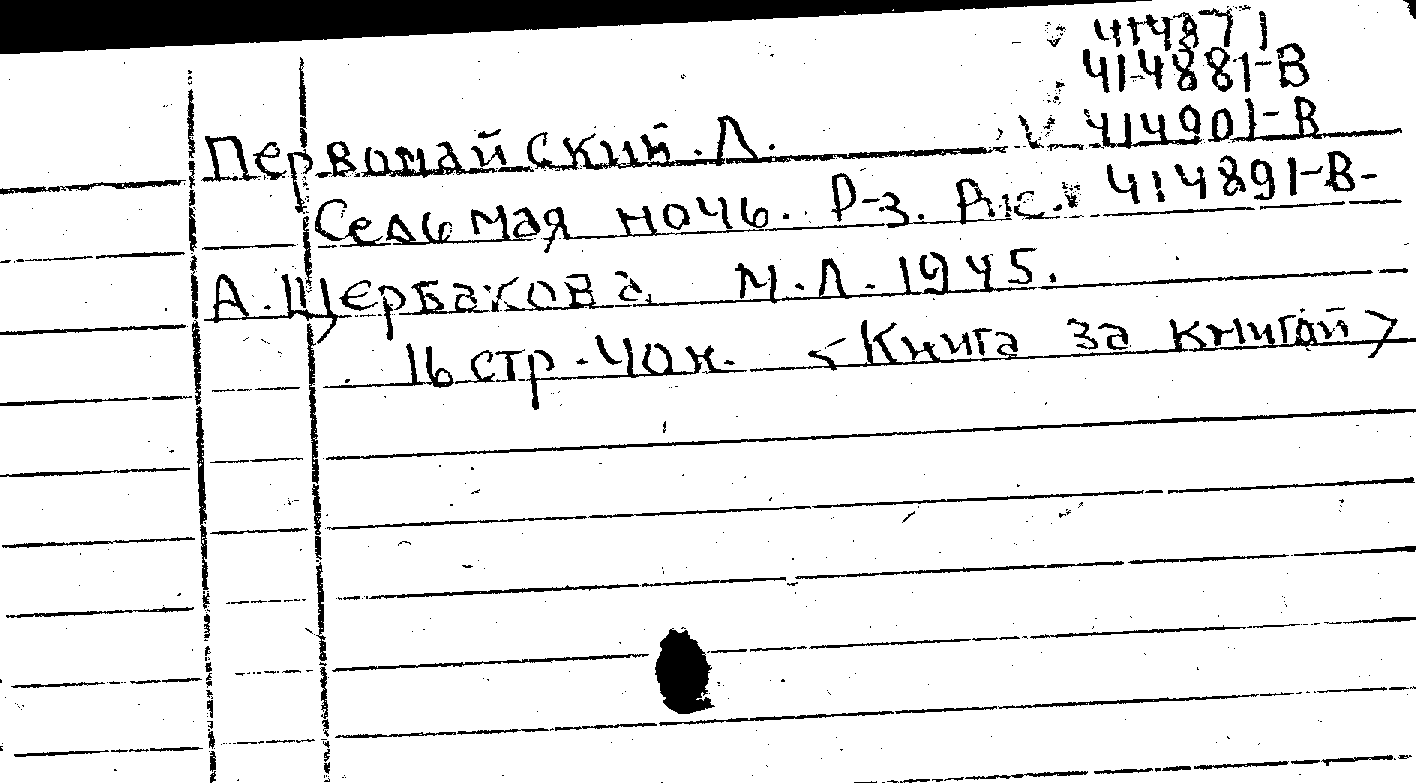 414871
414881-В
414901-В
Первомайский. Л.
414891-В-
Седьмая ночь. Р-з. Рис.
А. Щербакова М.Л. 1945.
16 стр. 40 к. <Книга за книгой>